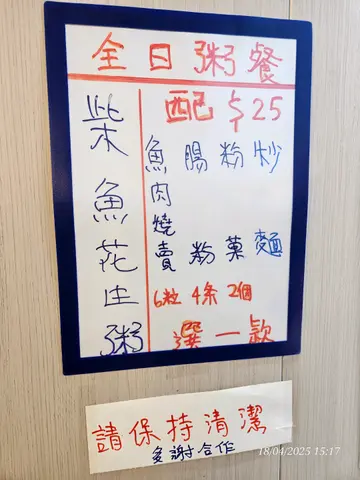 全日粥餐
柴魚花生粥
配 $25
魚肉燒賣 6粒
腸粉 4条
粉菓 2個
炒麵
選一款
請保持清潔
多謝合作
18/04/2025 15:17